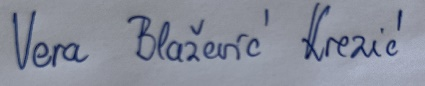 Vera Blažević Krezić